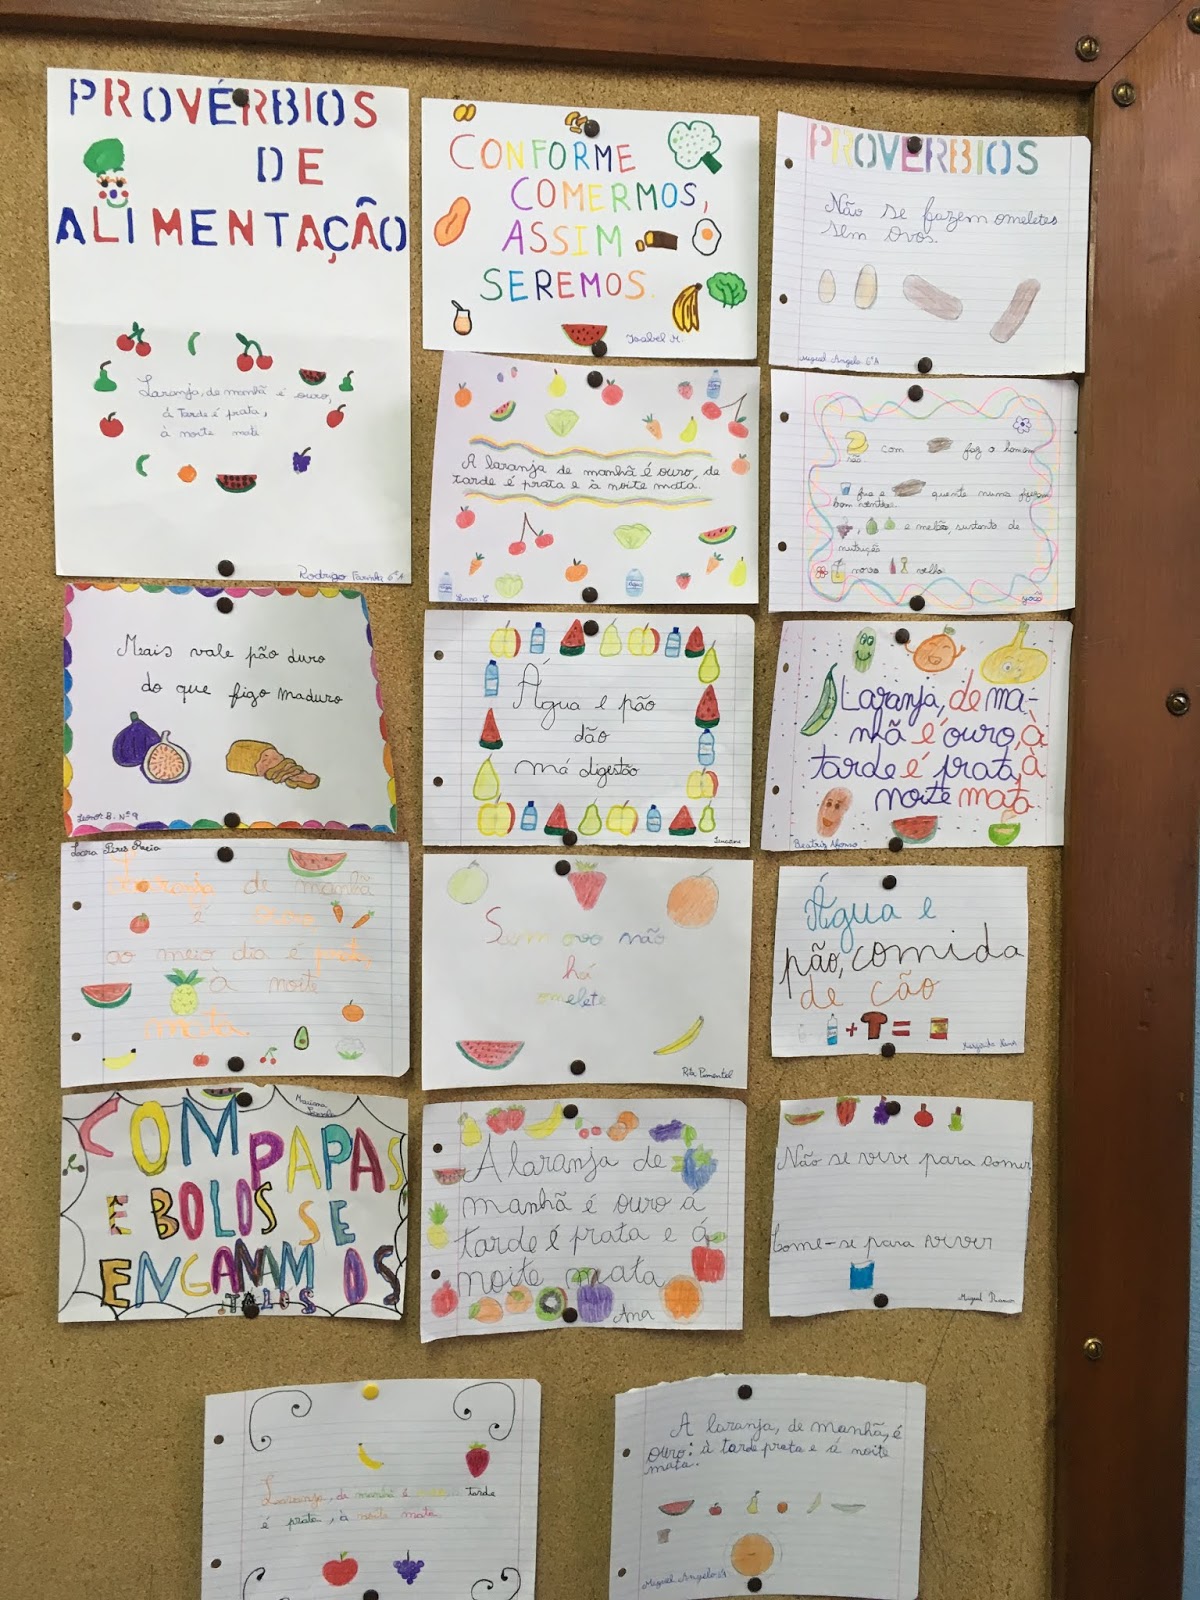 PROVÉRBIOS
DE
ALIMENTAÇÃO
Laranja, de manhã é ouro,
à tarde é prata,
à noite mata
Rodrigo Farinha 6ºA
CONFORME
COMERMOS,
ASSIM
SEREMOS.
Isabel M.
PROVERBIOS
Não se fazem omeletes
sem ovos.
Miguel Angelo 6ºA
A laranja de manhã é ouro, de
tarde é prata e à noite matá.
Água
não com faz o homem
fria e quente nunca fizeram
bom ventre.
, e melão, sustento de
nutrição
novo velho
João
Mais vale pão duro
do que figo maduro
Leonor B. Nº9
Água e pão
dão
má digestão
Laranja, de ma-
nhã é ouro, à
tarde é prata, à
noite mata
Beatriz Afonso
Lara Pires
Laranja de manhã
é ouro,
ao meio dia é prata,
à noite
mata.
Sem ovo não
há
omelete
Rita Pimentel
Água e
pão, comida
de cão
+ =
Margarida
Mariana
COM PAPAS
E BOLOS SE
ENGANAM OS
TOLOS
A laranja de
manhã é ouro á
tarde é prata e á
noite mata
Ana
Não se vive para comer
Come-se para viver
Miguel Ramos
Laranja, de manhã é ... tarde
é prata, à noite mata
A laranja, de manhã, é
ouro; à tarde prata e á noite
mata.
Miguel Angelo